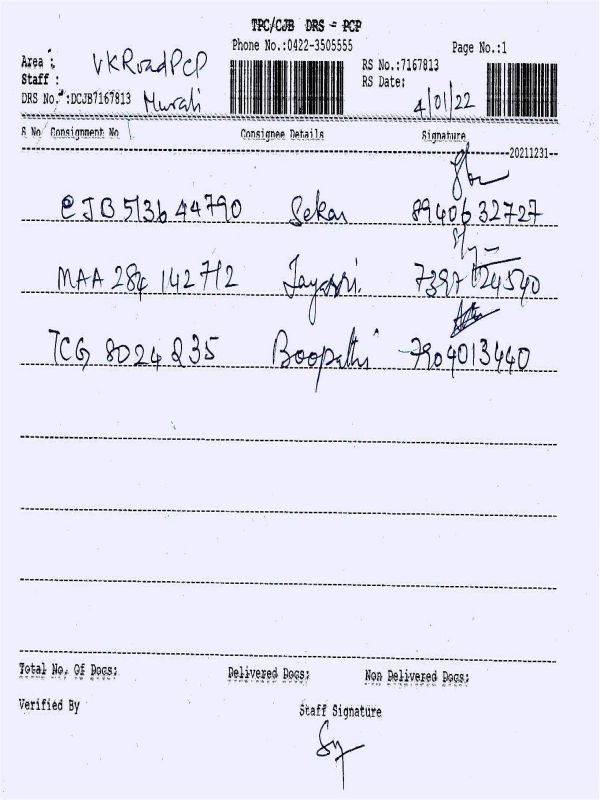 TPC/CJB DRS - PCP
Phone No.:0422-3505555 Page No.:1
Area : VKRoadPCP RS No.:7167813
Staff : RS Date: 4/01/22
DRS No.:DCJB7167813 Murali
S No Consignment No Consignee Details Signature
20211231
CJB 513644790 Sekar 8940632727
MAA 284 142712 Jayasri. 7397124540
TCG 8024235 Boopathi 7904013440
Total No. Of Docs: Delivered Docs: Non Delivered Docs:
Verified By Staff Signature